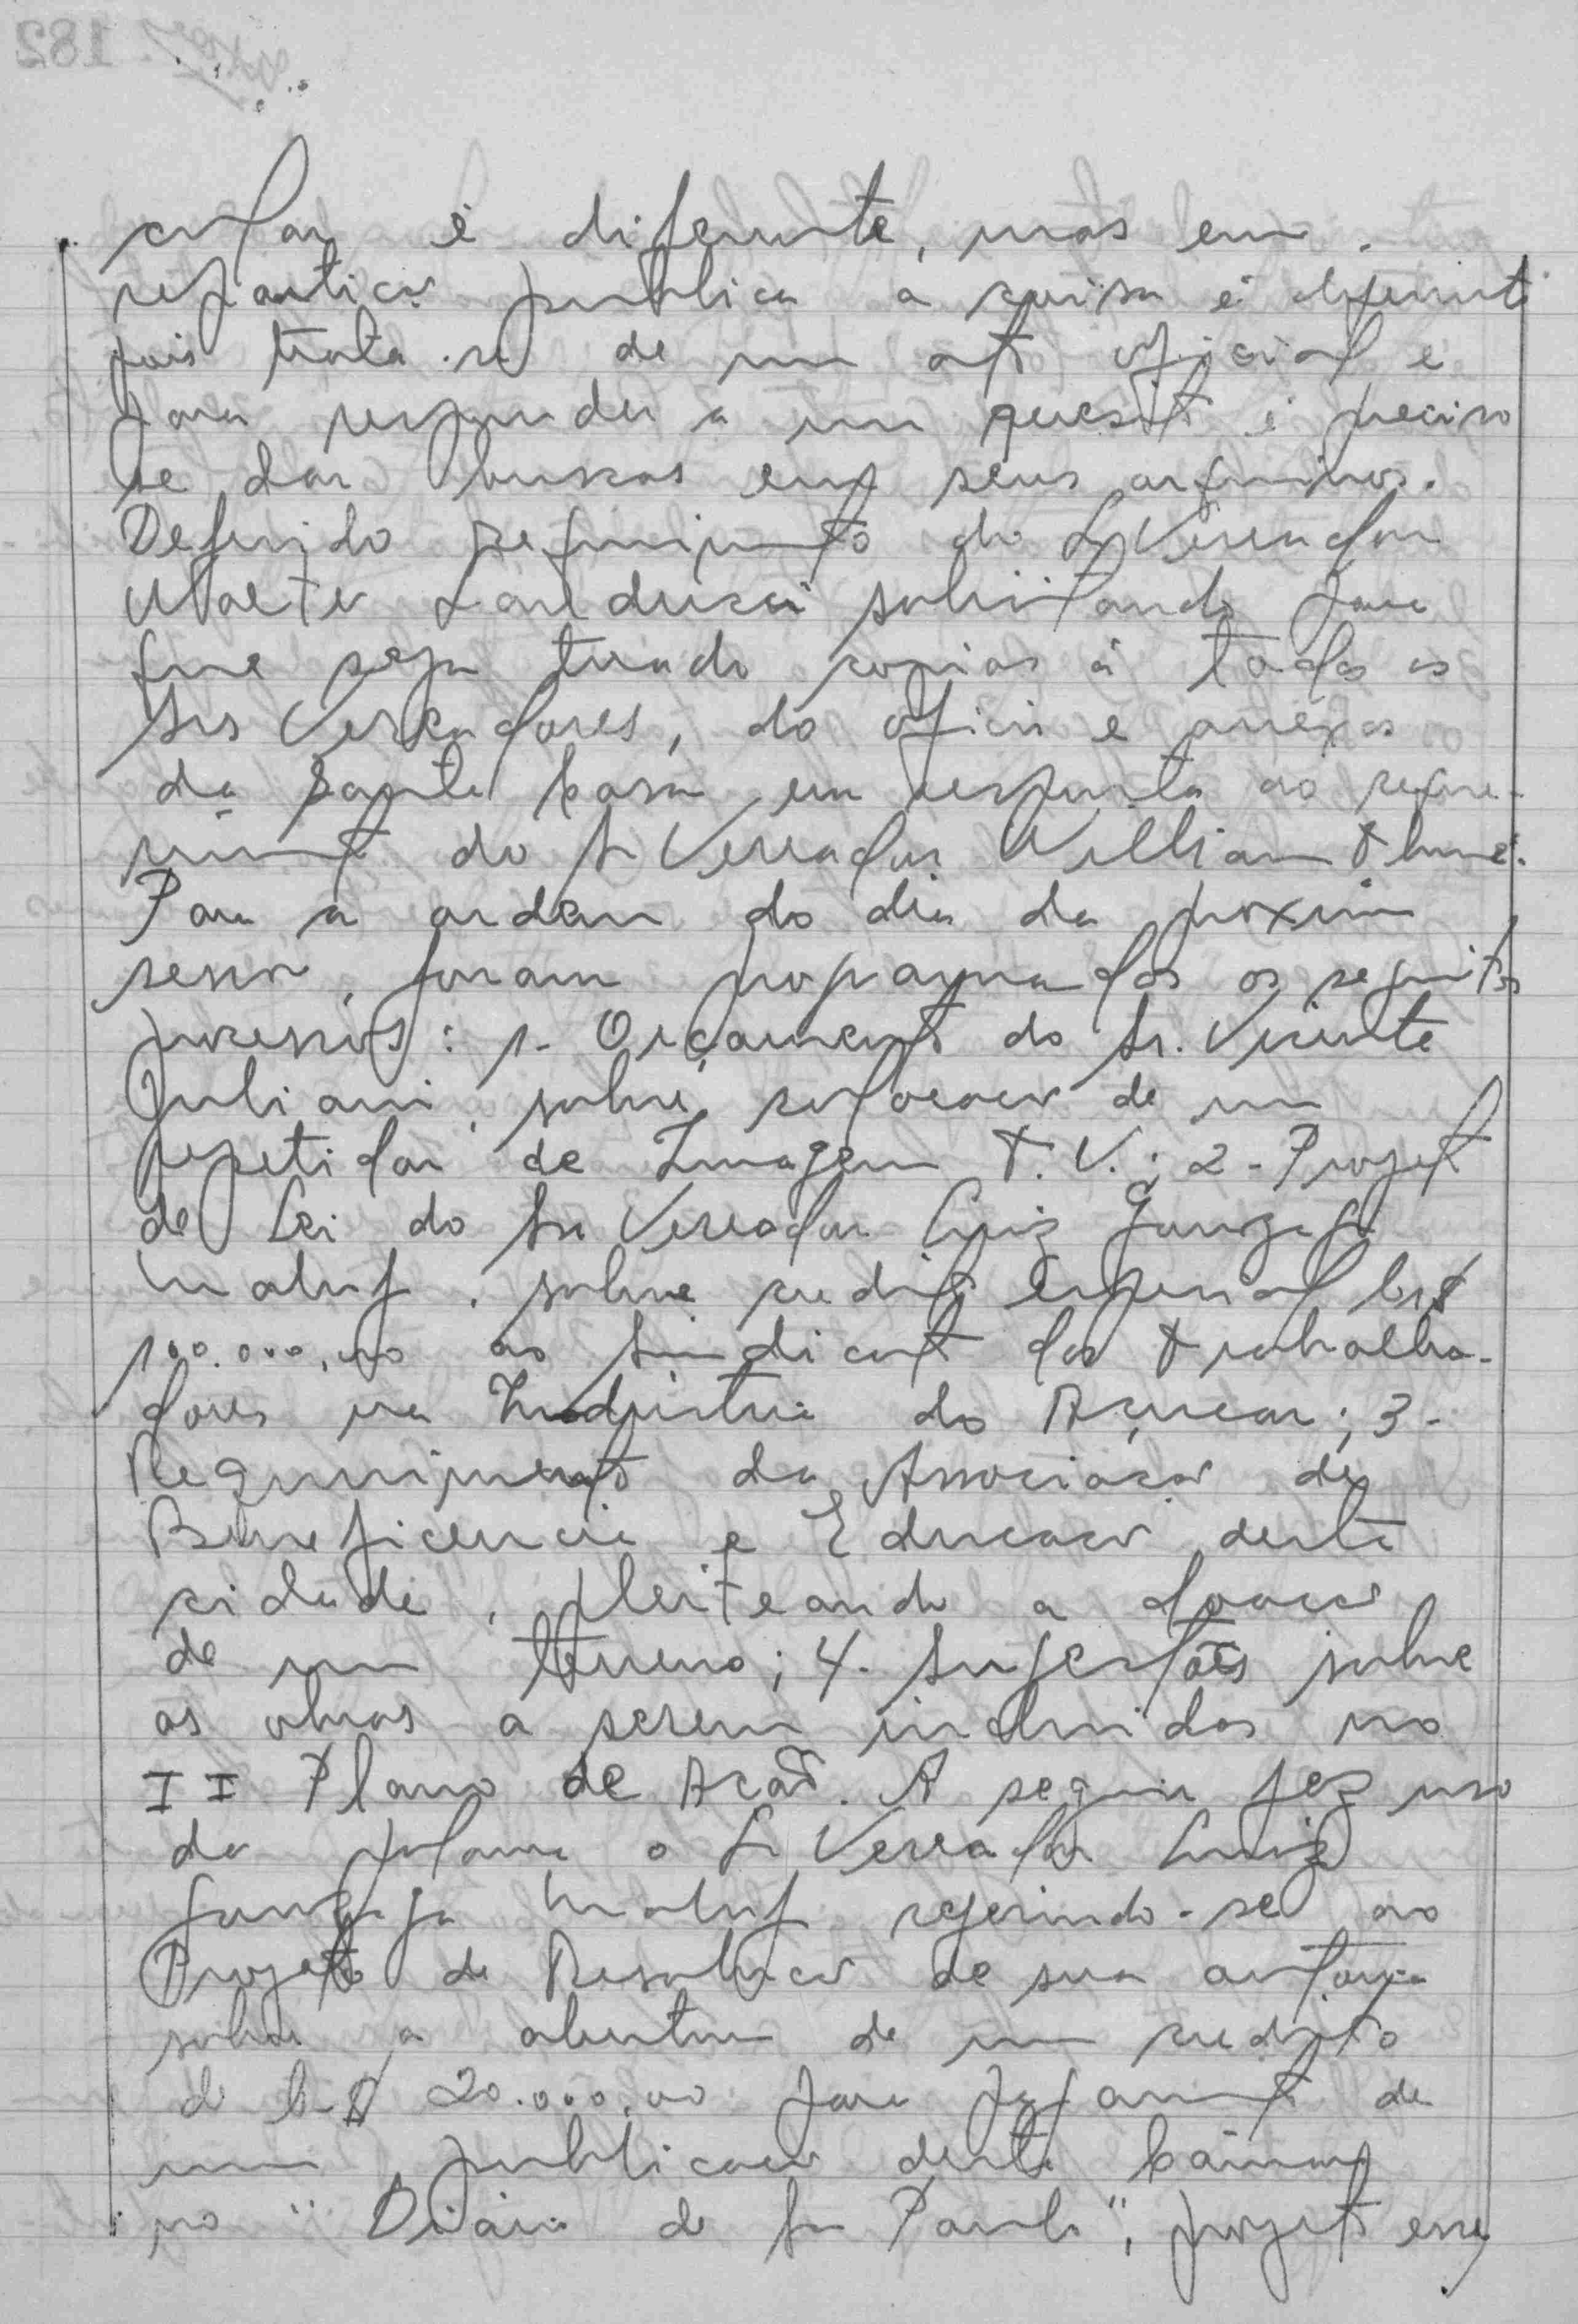 é diferente, mas em
repartição publica a coisa é diferente
pois trata-se de um ato oficial e
para responder a um quesito é preciso
se dar buscas em seus arquivos.
Deferido requerimento do Sr Vereador
Landucci solicitando para
que seja tirado copias á todos os
Srs Vereadores, do oficio e anexos
da Santa Casa em resposta ao reque-
rimento do Sr Vereador William
Para a ordem do dia da proxima
sessão, foram programados os seguintes
processos: 1- Orçamento do Sr. Vicente
Juliani, sobre colocação de um
repetidor de Imagem T.V.; 2- Projeto
de Lei do Sr Vereador Luiz Gonzaga
Maluf, sobre credito especial Cr$
100.000,00 ao Sindicato dos Trabalha-
dores na Industria do Açucar; 3-
Requerimento da Associação de
Beneficencia e Educação desta
cidade, pleiteando a doação
de um terreno; 4- Sugestões sobre
as obras a serem incluidas no
II Plano de Ação. A seguir fez uso
da palavra o Sr Vereador Luiz
Gonzaga Maluf referindo-se ao
Projeto de Resolução de sua autoria
sobre a abertura de um credito
de Cr$ 20.000,00 para pagamento de
uma publicação desta Câmara
no "Diário de São Paulo", projeto esse